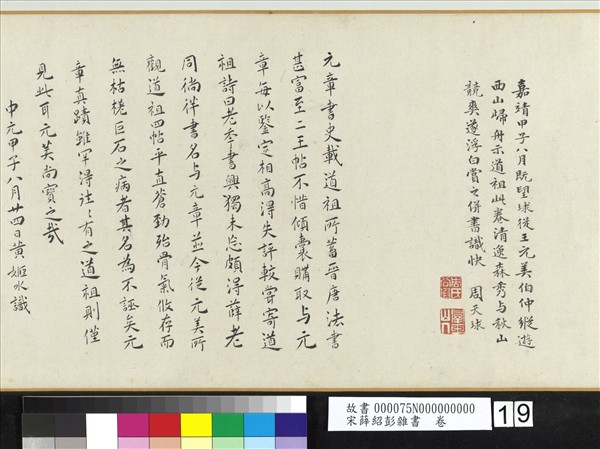 嘉靖甲子八月既望球從王元美伯仲縱遊
西山歸舟示道祖此卷清逸森秀与秋山
競爽遂浮白賞之併書識快 周天球
元章書史載道祖所蓄晉唐法書
甚富至二王帖不惜傾囊購取与元
章每以鑒定相高淂失評較嘗寄道
祖詩曰老來書興獨未忘頗淂薛老
同徜徉書名与元章並今從元美所
觀道祖四帖平直蒼勁殆骨氣攸存而
無枯槎巨石之病者其名為不誣矣元
章真蹟雖罕淂往〻有之道祖則僅
見此耳元美尚寶之哉
中元甲子八月廿四日黄姬水識
故書 000075N000000000
宋薛紹彭雜書 卷
19